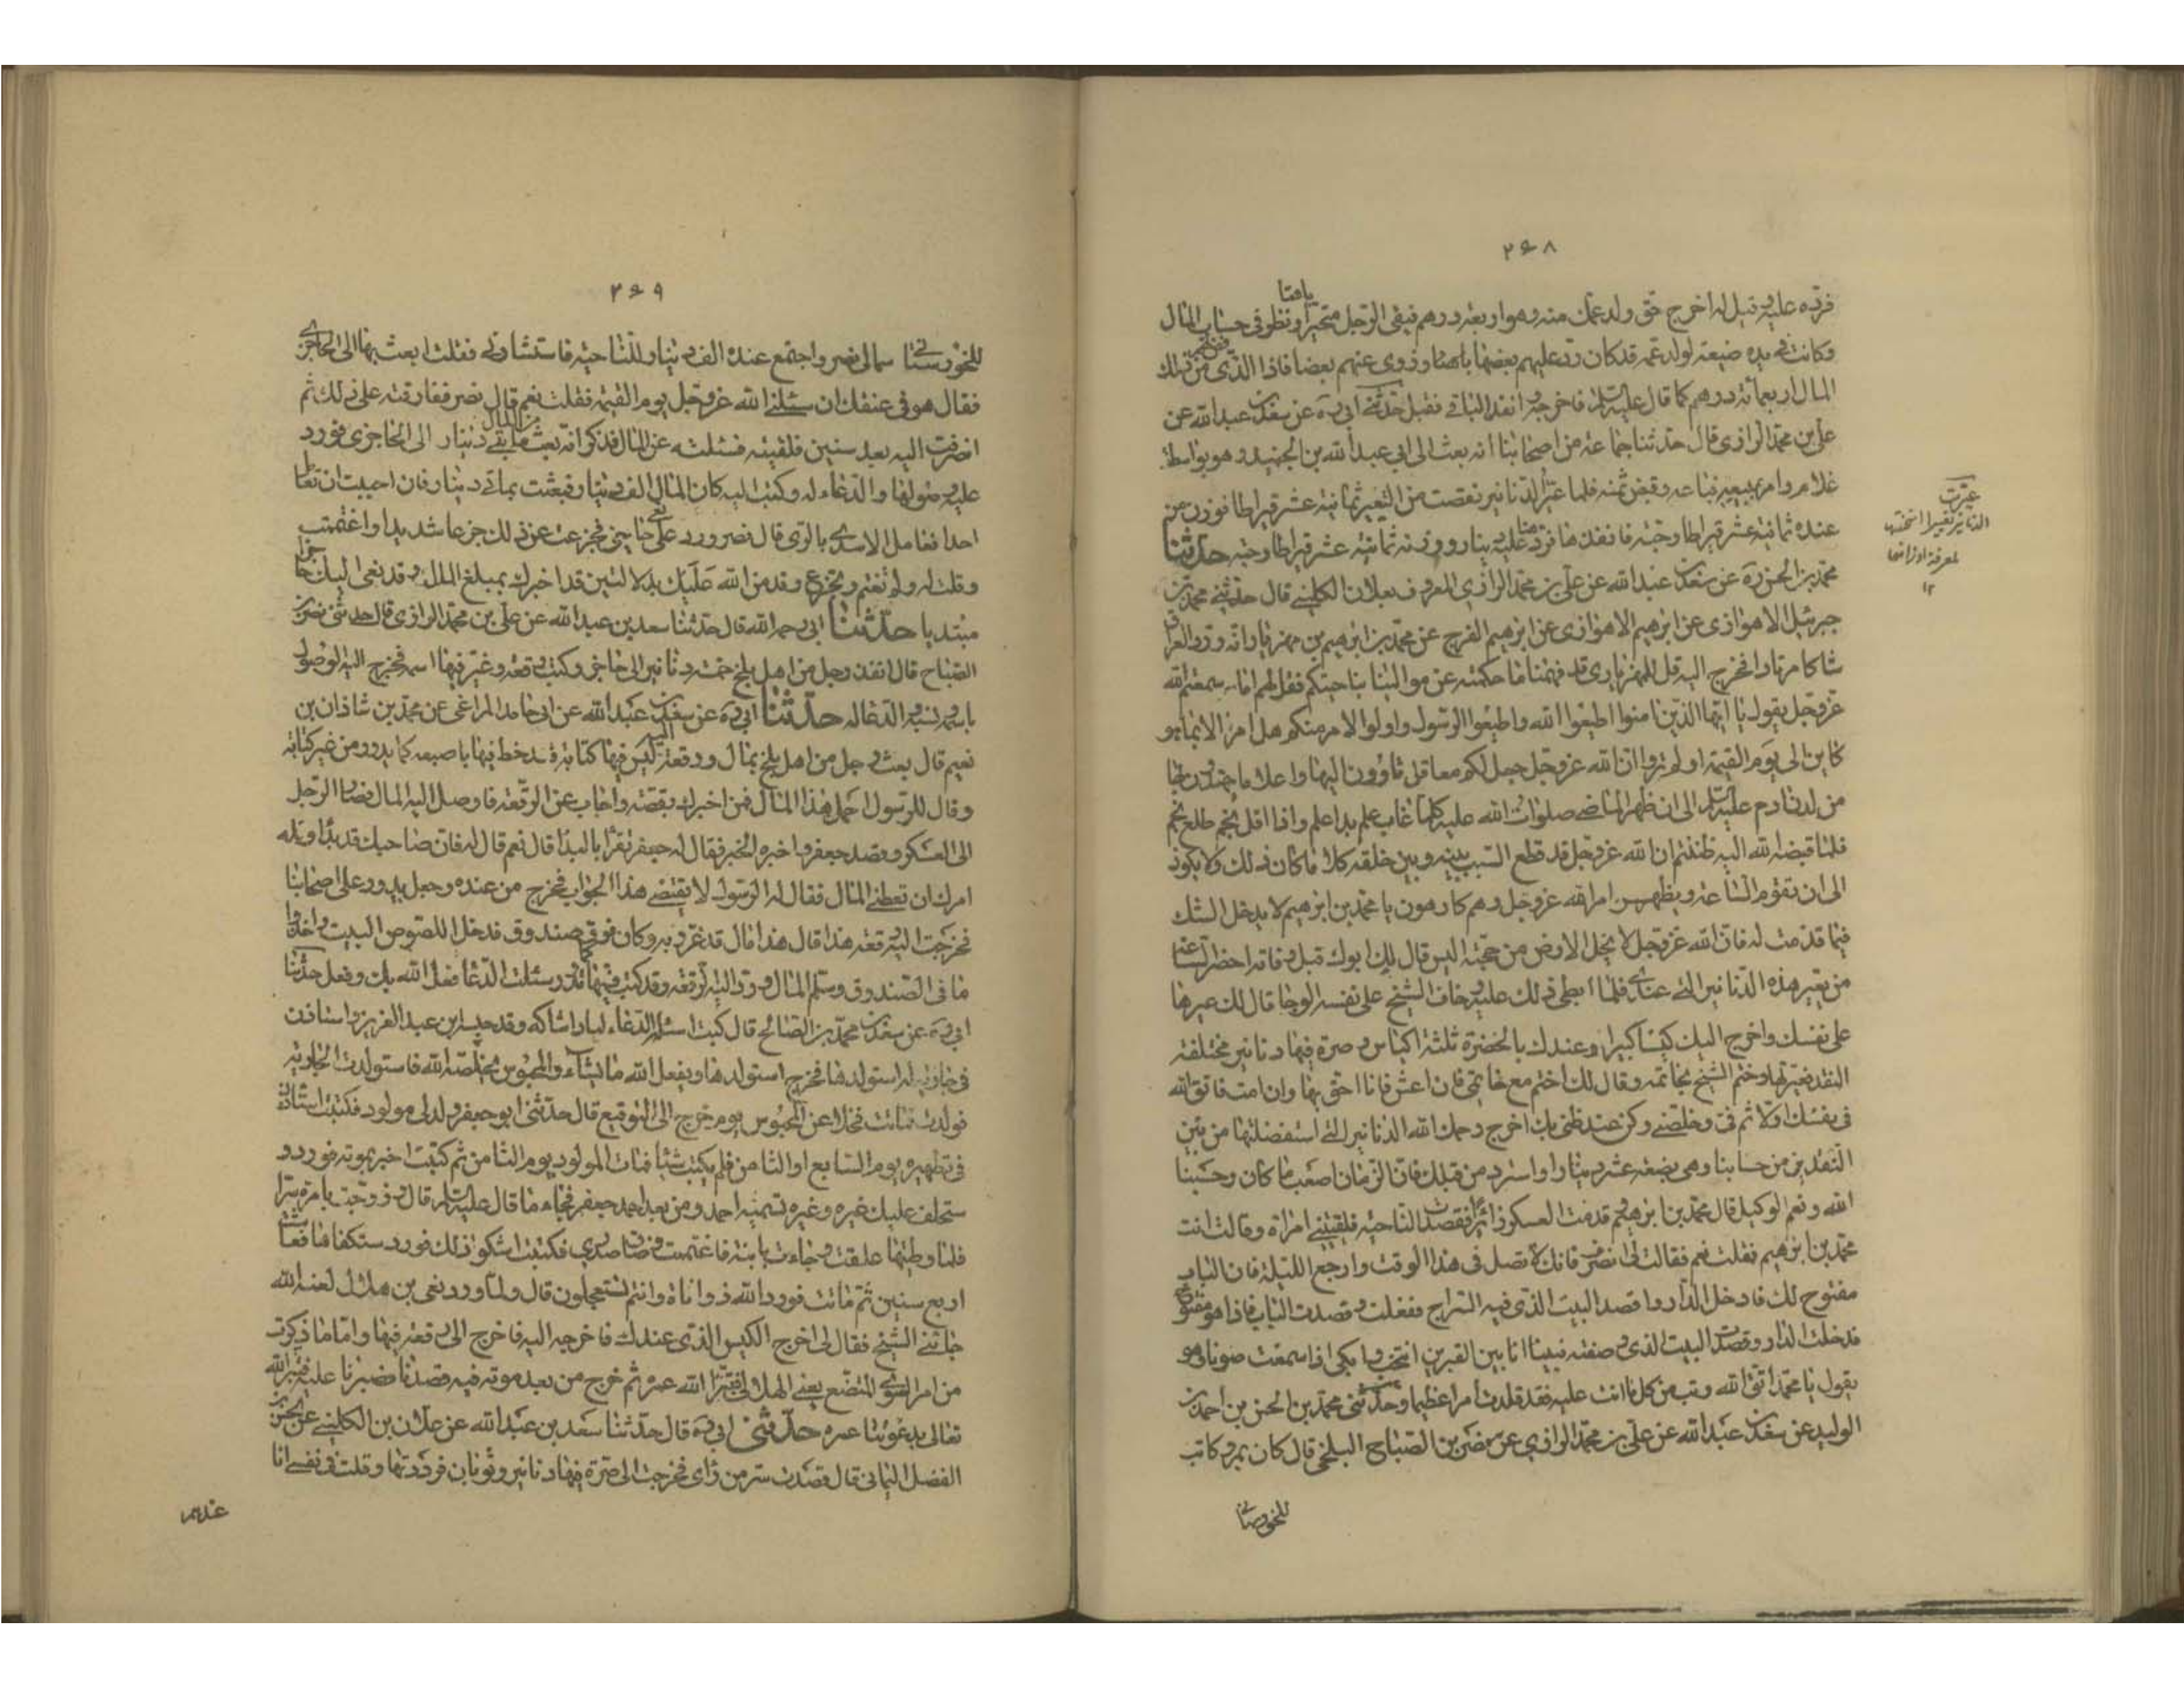 ٢٦٨
فرده عليه وقيل له اخرج حق ولد عمك منه وهو اربعة درهم فبقي الرجل متحيرا ونظر في حساب المال
باهتا
وكانت في يده ضيعة لولد عمه قد كان رد عليهم بعضها وزوى عنهم بعضا فاذا الذي من ذلك
المال اربعمائة درهم كما قال عليه السلم فاخرجه وانفذ الباقي فقبل حدثني ابي ره عن سعد بن عبد الله عن
علي بن محمد الرازي قال حدثنا جماعة من اصحابنا انه بعث الى ابي عبد الله بن الجنيد وهو بواسط
غلام وامر ببيعه فباعه وقبض ثمنه فلما عير الدنانير نقصت من التعير ثمانية عشر قيراطا فوزن من
عنده ثمانية عشر قيراطا وحبة فانفذها فرد عليه دينار وزنه ثمانية عشر قيراطا وحبة حدثنا
محمد بن الحسن ره عن سعد بن عبد الله عن علي بن محمد الرازي المعروف بعلان الكليني قال حدثني محمد بن
جبرئيل الاهوازي عن ابرهيم الفرج عن محمد بن ابرهيم بن مهزيار انه ورد العراق
شاكا مرتادا فخرج اليه قل للمهزياري قد فهمنا ما حكيته عن موالينا بناحيتكم فقل لهم اما سمعتم الله
عز وجل يقول يا ايها الذين امنوا اطيعوا الله واطيعوا الرسول واولوا الامر منكم هل امر الا بما هو
كاين الى يوم القيمة او لم تروا ان الله عز وجل جعل لكم معاقل تاوون اليها واعلاما تهتدون بها
من لدن ادم عليه السلم الى ان ظهر الماضي صلوات الله عليه كلما غاب علم بدا علم واذا افل نجم طلع نجم
فلما قبضه الله اليه ظننتم ان الله عز وجل قد قطع السبب بينه وبين خلقه كلا ما كان ذلك ولا يكون
الى ان تقوم الساعة ويظهر امر الله عز وجل وهم كارهون يا محمد بن ابرهيم لا يدخل الشك
فيما قدمت له فان الله عز وجل لا يخلي الارض من حجة اليس قال لك ابوك قبل وفاته احضر الساعة
من يعير هذه الدنانير التي عندي فلما ابطئ ذلك عليه وخاف الشيخ على نفسه الوحا قال لك عيرها
على نفسك واخرج اليك كيسا كبيرا وعندك بالحضرة ثلثة اكياس وصرة فيها دنانير مختلفة
النقد فعيرتها وختم الشيخ بخاتمه وقال لك اختم مع خاتمي فان اعش فانا احق بها وان امت فاتق الله
في نفسك اولا ثم في وخلصني وكن عند ظني بك اخرج رحمك الله الدنانير التي استفضلتها من بين
النقدين من حسابنا وهي بضعة عشر دينارا واسترد من قبلك فان الزمان اصعب ما كان وحسبنا
الله ونعم الوكيل قال محمد بن ابرهيم وقدمت العسكر زائرا فقصدت الناحية فلقيتني امراة وقالت انت
محمد بن ابرهيم فقلت نعم فقالت لي انصرف فانك لا تصل في هذا الوقت وارجع الليلة فان الباب
مفتوح لك فادخل الدار واقصد البيت الذي فيه السراج ففعلت وقصدت الباب فاذا هو مفتوح
فدخلت الدار وقصدت البيت الذي وصفته فبينا انا بين القبرين انتحب وابكي اذ سمعت صوتا وهو
يقول يا محمد اتق الله وتب من كل ما انت عليه فقد قلدت امرا عظيما وحدثني محمد بن الحسن بن احمد بن
الوليد عن سعد بن عبد الله عن علي بن محمد الرازي عن نصر بن الصباح البلخي قال كان بمرو كاتب
للخوزستاني
عيرت
الدنانير تعييرا امتحنتها
لمعرفة اوزانها
١٢
٢٦٩
للخوزستاني سماه لي نصر واجتمع عنده الف دينار للناحية فاستشارني فقلت ابعث بها الى الحاجزي
فقال هو في عنقك ان سئلني الله عز وجل يوم القيمة فقلت نعم قال نصر ففارقته على ذلك ثم
انصرفت اليه بعد سنين فلقيته فسئلته عن المال فذكر انه بعث من المال بمائتي دينار الى الحاجزي فورد
عليه وصولها والدعاء له وكتب اليه كان المال الف دينار فبعثت بمائتي دينار فان احببت ان تعامل
احدا فعامل الاسدي بالري قال نصر وورد علي نعي حاجزي فجزعت من ذلك جزعا شديدا واغتممت
وقلت له ولم تغتم وتجزع وقد من الله عليك بدلالتين قد اخبرك بمبلغ المال وقد نعى اليك حاجزا
مبتديا حدثنا ابي رحمه الله قال حدثنا سعد بن عبد الله عن علي بن محمد الرازي قال حدثني نصر بن
الصباح قال انفذ رجل من اهل بلخ خمسة دنانير الى حاجزي وكتب رقعة وغير فيها اسمه فخرج اليه الوصول
باسمه ونسبه والدعا له حدثنا ابي ره عن سعد بن عبد الله عن ابي حامد المراغي عن محمد بن شاذان بن
نعيم قال بعث رجل من اهل بلخ بمال ورقعة ليس فيها كتابة قد خط فيها باصبعه كما يدور من غير كتابة
وقال للرسول احمل هذا المال فمن اخبرك بقصته واجاب عن الرقعة فاوصل اليه المال فصار الرجل
الى العسكر وقصد جعفر واخبره الخبر فقال له جعفر تقر بالبدا قال نعم قال له فان صاحبك قد بدا له
امرك ان تعطني المال فقال له الرسول لا يقنعني هذا الجواب فخرج من عنده وجعل يدور على اصحابنا
فخرجت اليه رقعة هذا قال هذا مال قد غرر به وكان فوق صندوق فدخل اللصوص البيت واخذوا
ما في الصندوق وسلم المال وردت اليه الرقعة وقد كتب فيها كما تدور وسئلت الدعا فعل الله بك وفعل حدثنا
ابي ره عن سعد بن محمد بن الصالح قال كتبت اسئله الدعاء لباداشاكه وقد حبسه ابن عبد العزيز واستاذن
في جارية له استولدها فخرج استولدها ويفعل الله ما يشاء والمحبوس يخلصه الله فاستولدت الجارية
فولدت فماتت فخلا عن المحبوس يوم خرج الى التوقيع قال حدثني ابو جعفر ولد لي مولود فكتبت استاذن
في تطهيره يوم السابع او الثامن فلم يكتب شيئا فمات المولود يوم الثامن ثم كتبت اخبر بموته فورد
ستخلف عليك غيره وغيره تسميه احمد ومن بعد احمد جعفر فجاء ما قال عليه السلم قال وتزوجت بامرة سرا
فلما وطئتها علقت وجاءت بابنة فاغتممت وضاق صدري فكتبت اشكو ذلك فورد ستكفاها فعاشت
اربع سنين ثم ماتت فورد الله ذو اناة وانتم تستعجلون قال ولما ورد نعي بن هلال لعنه الله
جائني الشيخ فقال لي اخرج الكيس الذي عندك فاخرجه اليه فاخرج الي رقعة فيها واما ما ذكرت
من امر الصوفي المتصنع يعني الهلالي بتر الله عمره ثم خرج من بعد موته فيه قصدنا فصبرنا عليه فبتر الله
تعالى بدعوتنا عمره حدثني ابي ره قال حدثنا سعد بن عبد الله عن علان بن الكليني عن الحسن بن
الفضل اليماني قال قصدت سر من راى فخرجت الي صرة فيها دنانير وثوبان فرددتها وقلت في نفسي انا
عندهم